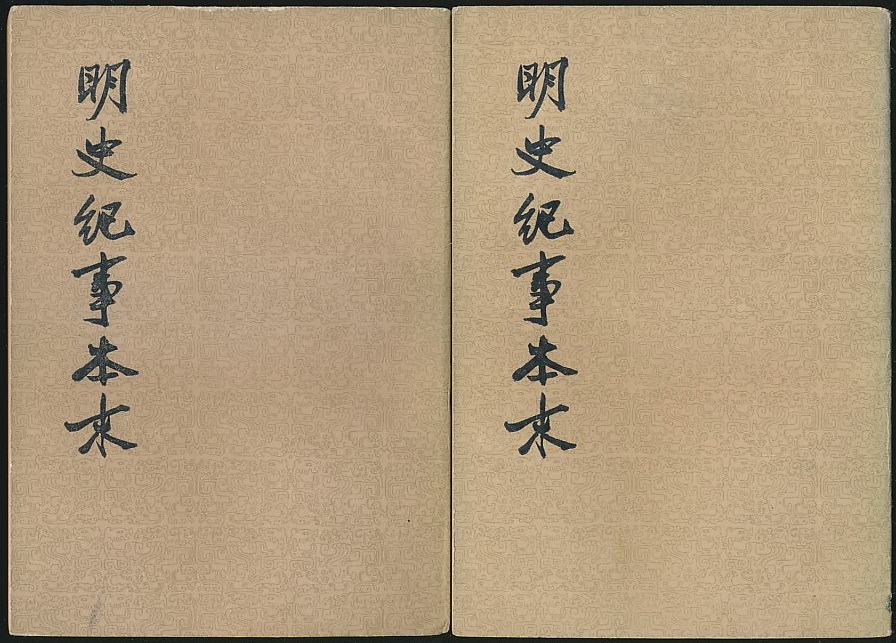 明史紀事本末
明史紀事本末